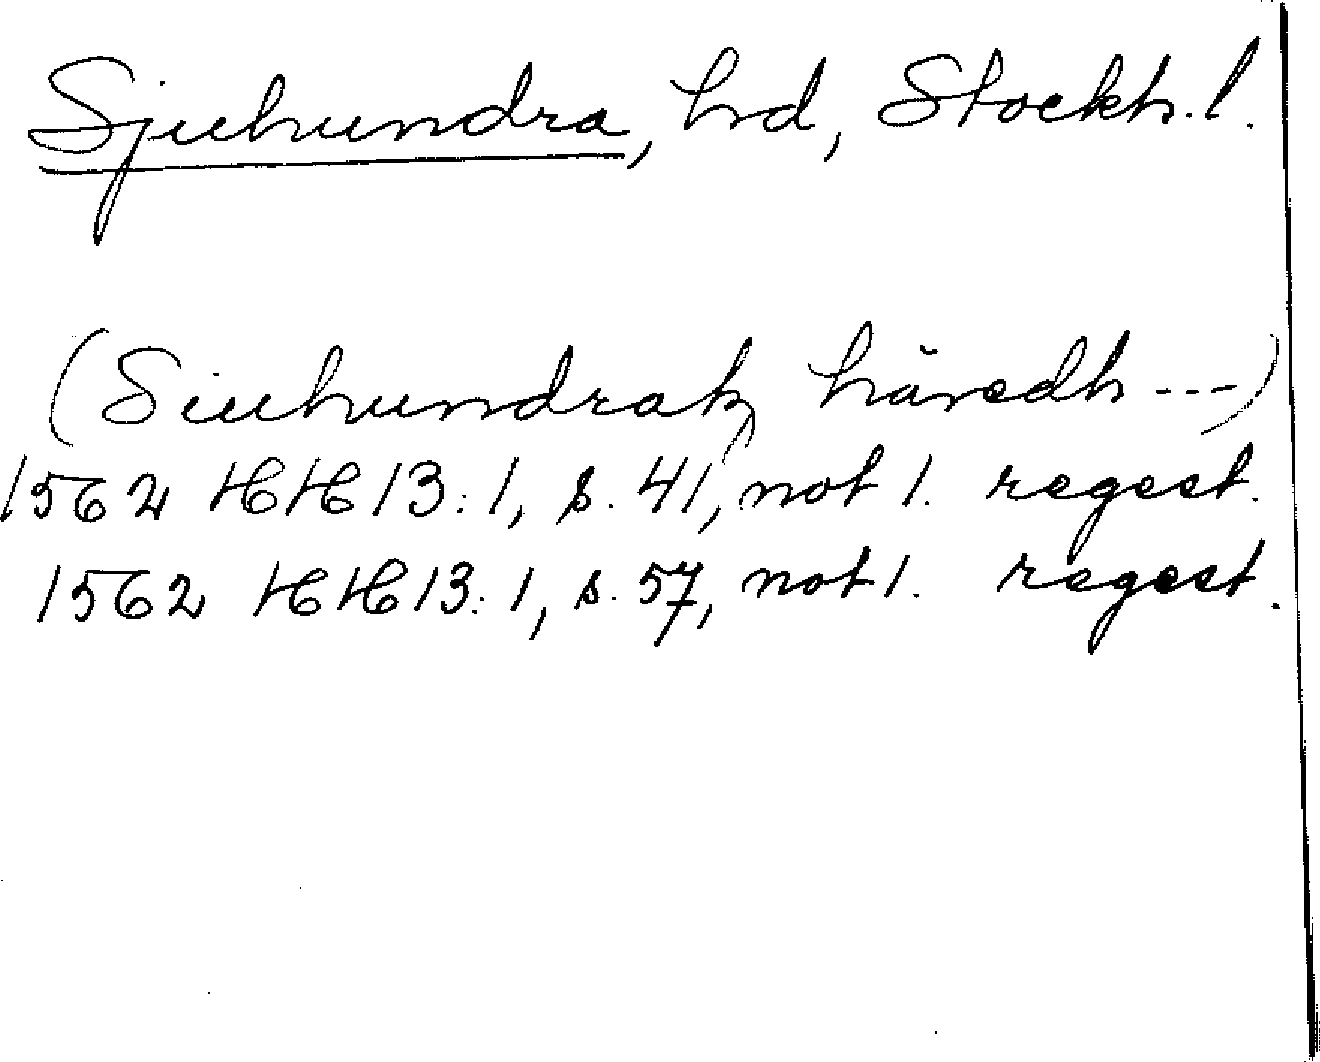 Sjuhundra, hd, Stockh. l.
(Siuhundratz häredh ---)
1562 HH 13:1, s. 41, not 1. regest.
1562 HH 13:1, s. 57, not 1. regest.